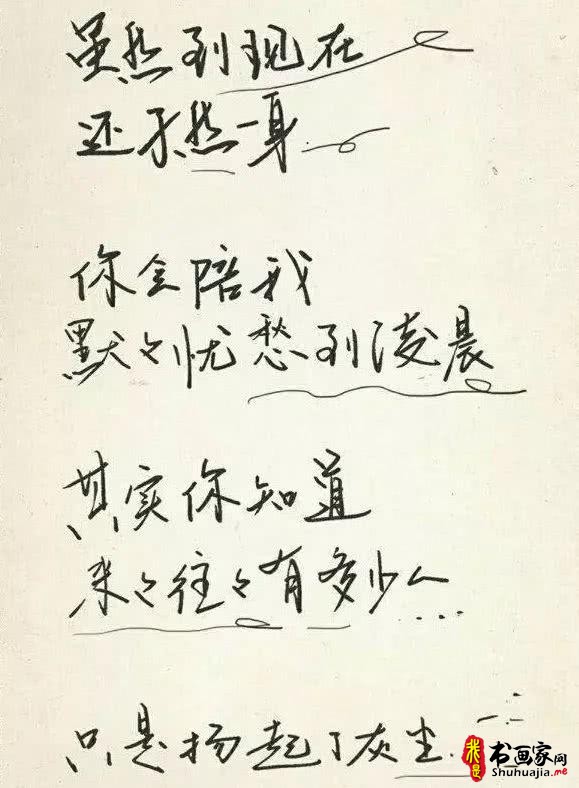 虽然到现在
还孑然一身
你会陪我
默々忧愁到凌晨
其实你知道
来々往々有多少人...
只是扬起了灰尘
我是
书画家网
Shuhuajia.me